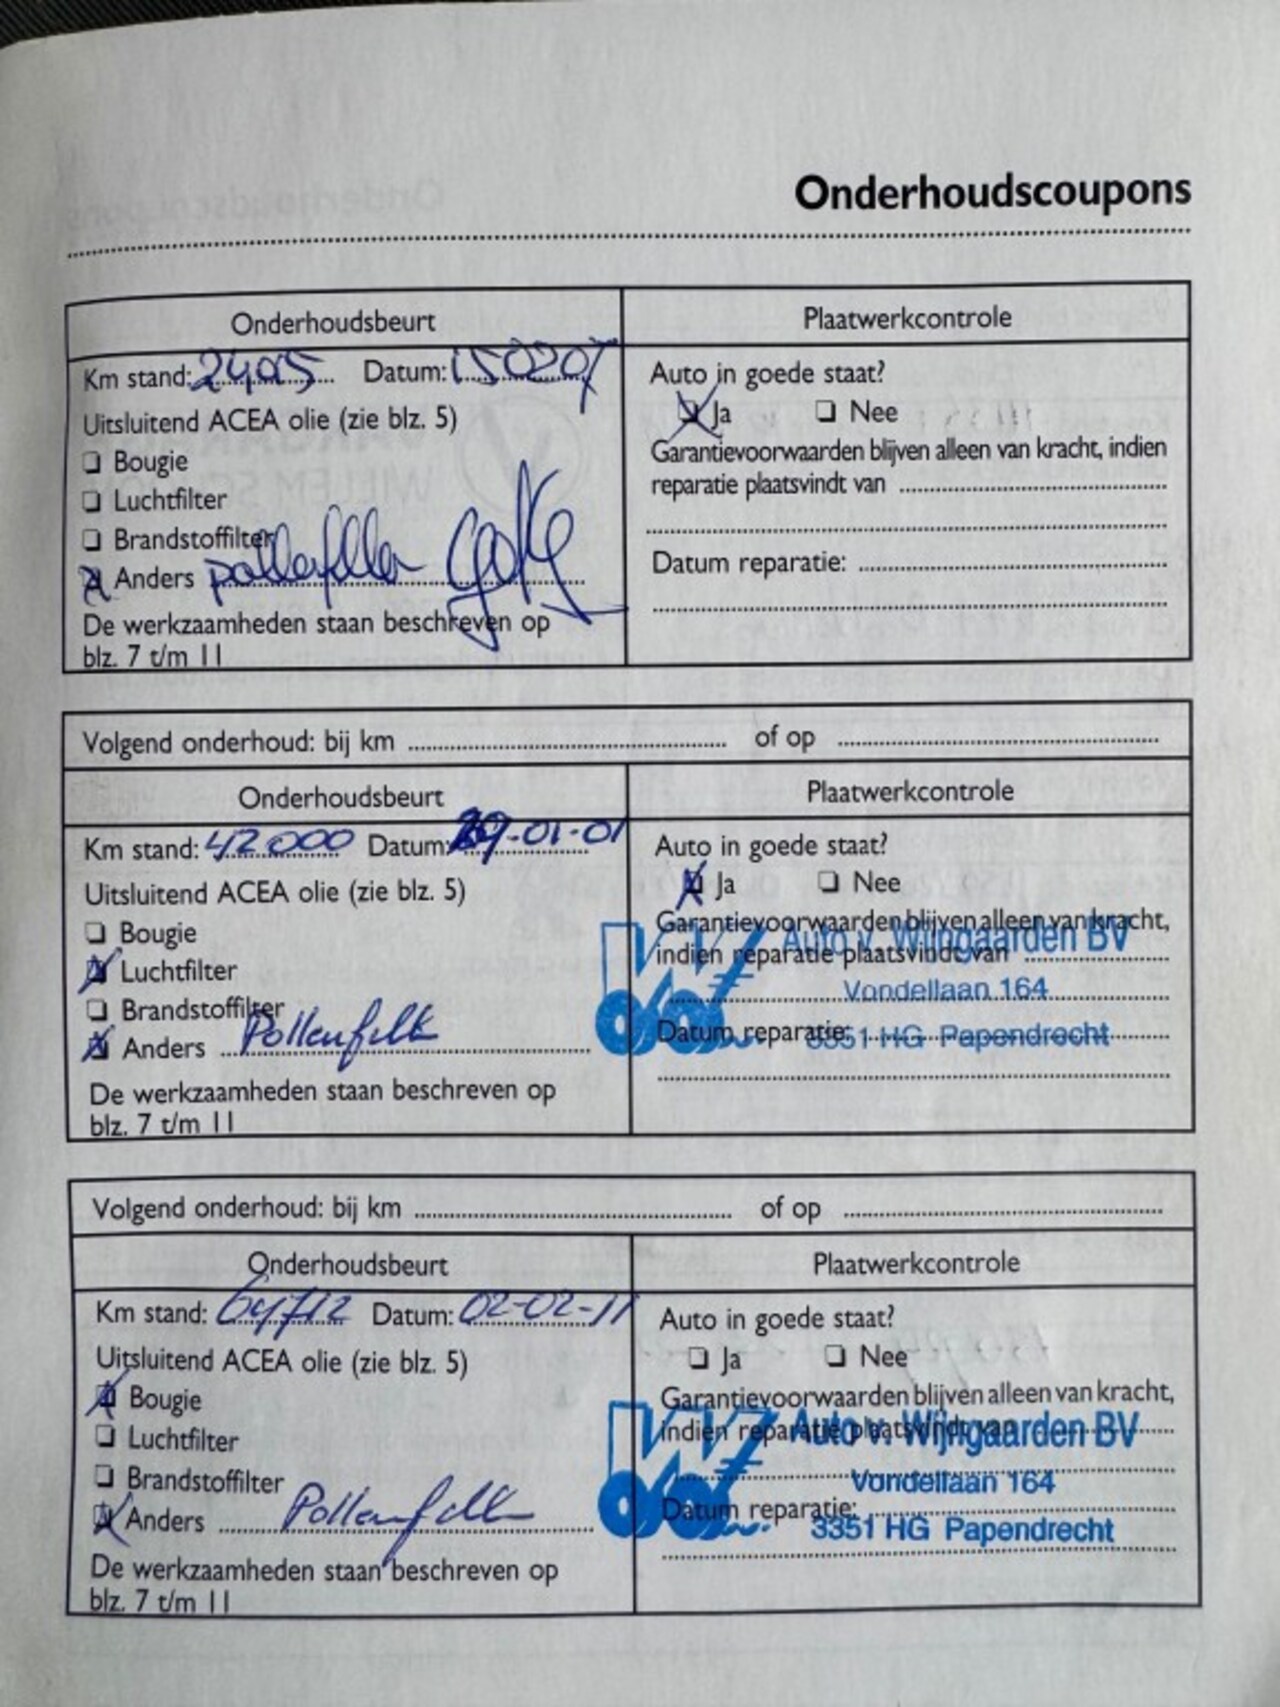 Onderhoudscoupons
Onderhoudsbeurt
Plaatwerkcontrole
Km stand: Datum: 150207
Uitsluitend ACEA olie (zie blz. 5)
Bougie
Luchtfilter
Brandstoffilter
Anders pollenfilter
De werkzaamheden staan beschreven op
blz. 7 t/m 11
Auto in goede staat?
Ja Nee
Garantievoorwaarden blijven alleen van kracht, indien
reparatie plaatsvindt van
Datum reparatie:
Volgend onderhoud: bij km of op
Onderhoudsbeurt
Plaatwerkcontrole
Km stand: 42000 Datum: -01-01
Uitsluitend ACEA olie (zie blz. 5)
Bougie
Luchtfilter
Brandstoffilter
Anders Pollenfilt
De werkzaamheden staan beschreven op
blz. 7 t/m 11
Auto in goede staat?
Ja Nee
Garantievoorwaarden blijven alleen van kracht,
indien reparatie plaatsvindt van
Datum reparatie:
Auto v. Wijngaarden BV
Vondellaan 164
3351 HG Papendrecht
Volgend onderhoud: bij km of op
Onderhoudsbeurt
Plaatwerkcontrole
Km stand: 64712 Datum: 02-02-11
Uitsluitend ACEA olie (zie blz. 5)
Bougie
Luchtfilter
Brandstoffilter
Anders Pollenfilt
De werkzaamheden staan beschreven op
blz. 7 t/m 11
Auto in goede staat?
Ja Nee
Garantievoorwaarden blijven alleen van kracht,
indien reparatie plaatsvindt van
Datum reparatie:
Auto v. Wijngaarden BV
Vondellaan 164
3351 HG Papendrecht